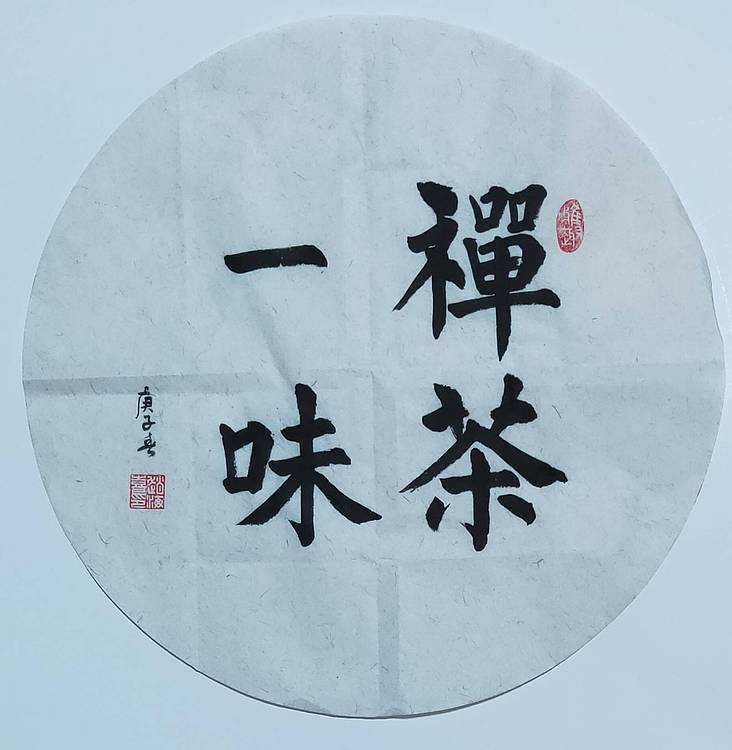 禪茶
一味
庚子春